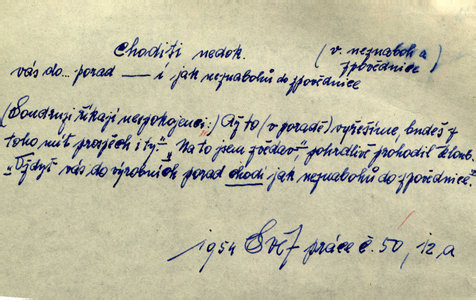 Choditi nedok. (v. neznaboh a
zpovědnice)
vás do... porad — i jak neznabohů do zpovědnice
(Soudruzi říkají nespokojenci:) Až to (v poradě) vyřešíme, budeš z
toho mít prospěch i ty." "Na to jsem zvědav", pohrdlivě prohodil
"Vždyť vás do výrobních porad chodí jak neznabohů do zpovědnice"
1954 Svět práce č. 50, 12, a